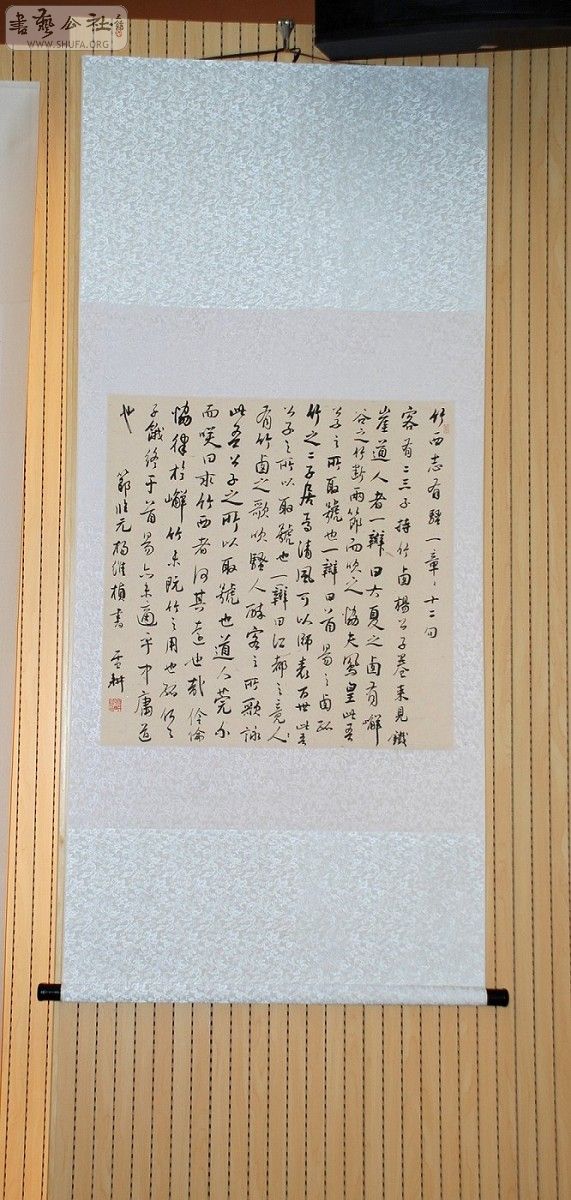 書藝公社
WWW.SHUFA.ORG
竹西志有騷一章々十二句
客有二三子持竹西楊公子卷来見鐵
崖道人者一辯曰大夏之西有嶰
谷之竹斷兩節而吹之協夫鳳皇此吾
公子之所取號也一辯曰首昜之西孤
竹之二子居焉清風可以師表百世此吾
公子之所以取號也一辯曰江都之竟
有竹西之歌吹騷人醉客之所歌詠
此吾公子之所以取號也道人莞尔
而咲曰求竹西者何其遠也哉伶倫
協律於嶰竹未既竹之用也孤竹之
子餓終于首昜亦未適乎中庸道
也
節臨元楊維楨書